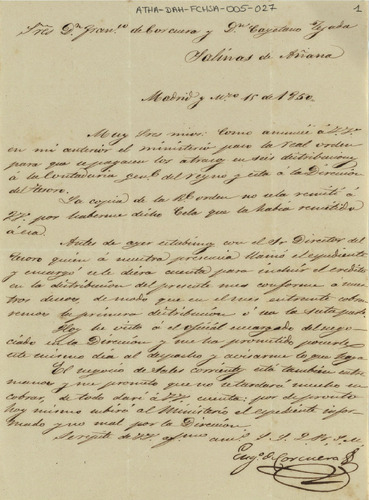 ATHA-DAH-FCHSA-005-027
1
Sres Dn Franco de Corcuera y Dn Cayetano Tejada
Salinas de Añana
Madrid y Mzo 15 de 1850.
Muy Sres mios: Como anuncié á VV.
en mi anterior el ministerio pasó la real orden
para que se paguen los atrasos en seis distribuciones
á la Contaduria genl del reyno y esta á la Dirección
del Tesoro.
La copia de la Rl orden no la remití á
VV. por haberme dicho Cela que la había remitido
á esa
Antes de ayer estubimos con el Sr Director del
Tesoro quien á nuestra presencia llamó el espediente
y encargó se le diera cuenta para incluir el credito
en la distribucion del presente mes conforme á nues
tros deseos, de modo que en el mes entrante cobra
remos la primera distribucion ó sea la sesta parte.
Hoy he visto á el oficial encargado del nego
ciado en la Direccion y me ha prometido ponerlo
este mismo dia al despacho y avisarme lo que haya
El negocio de Sales corriente está tambien entre
manos y me prometo que no se tardará mucho en
cobrar, de todo daré á VV. cuenta: por de pronto
hoy mismo subirá al Ministerio el espediente infor
mado y no mal por la Direccion.
Eugo de Corcuera